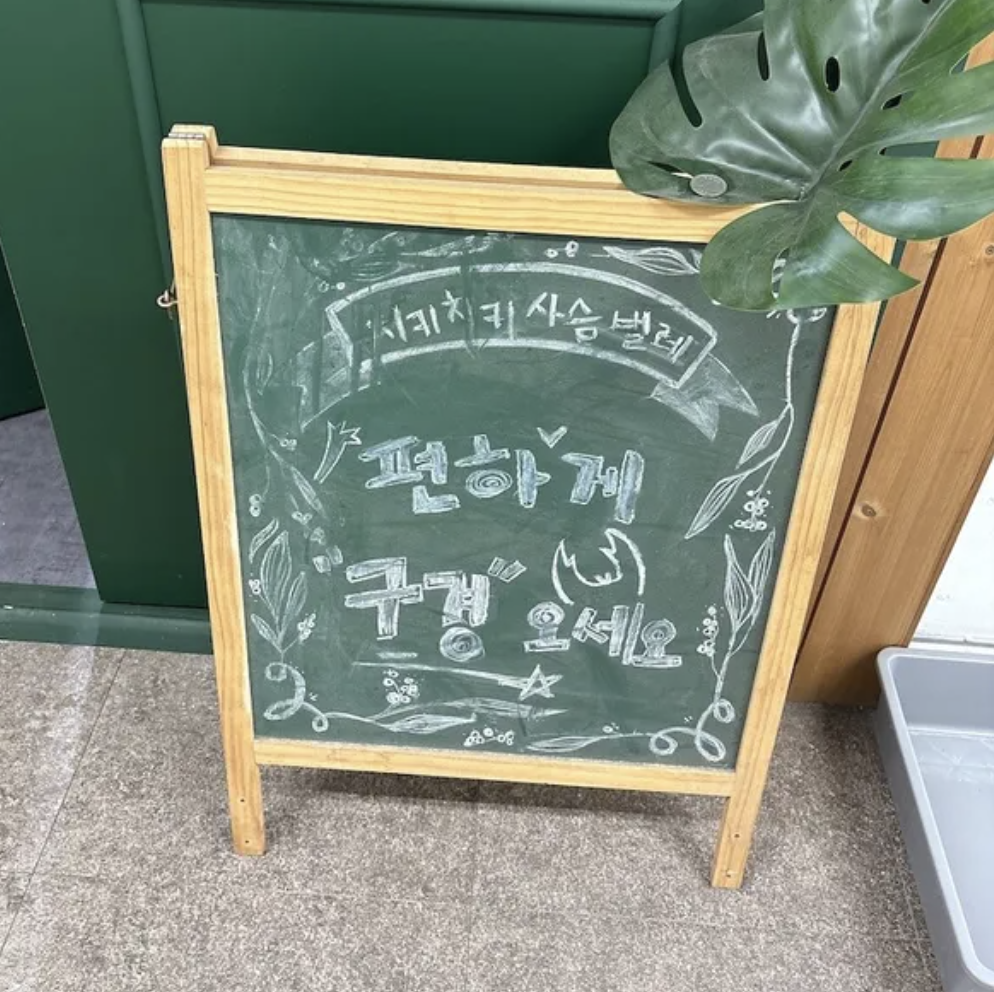 시키치키 사슴벌레
편하게
구경 오세요